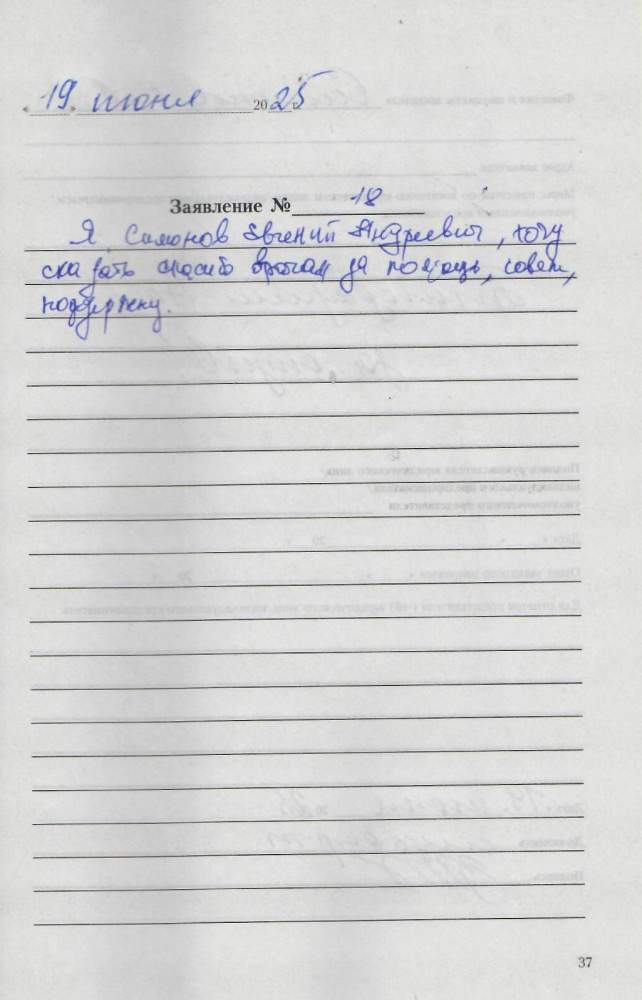 19 июня 2025
Заявление № 18
Я, Симонов Евгений Андреевич, хочу
сказать спасибо врачам за помощь, совет,
поддержку.
37